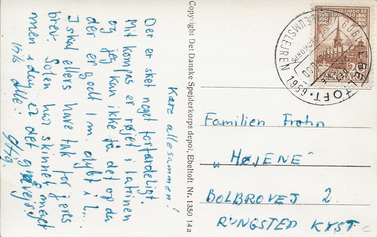 Kære allesammen!
Der er sket noget forfærdeligt
Mit kompas er røget i latrinen
og jeg kan ikke få det op da
der er godt 1 m dybt i!..
I skal ellers have tak for jeres
brev. Solen har skinnet meget
men i dag er det gråvejr
Hils alle!
Copyright Det Danske Spejderkorps depot, Ebeltoft Nr. 1350 14a
EBELTOFT
1959
Familien Frohn
"HØJENE"
BOLBROVEJ 2
RUNGSTED KYST